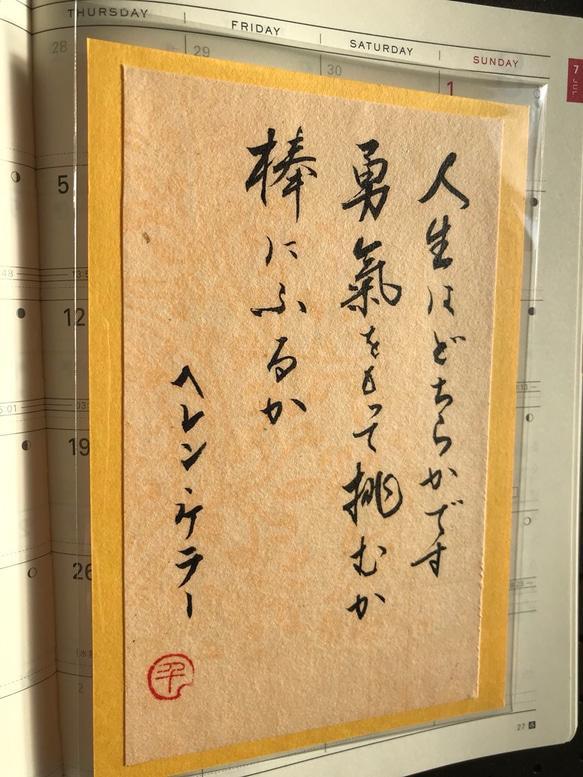 THURSDAY
FRIDAY
SATURDAY
SUNDAY
28
29
30
1
7
5
12
19
26
2
27
人生はどちらかです
勇氣をもって挑むか
棒にふるか
ヘレン・ケラー